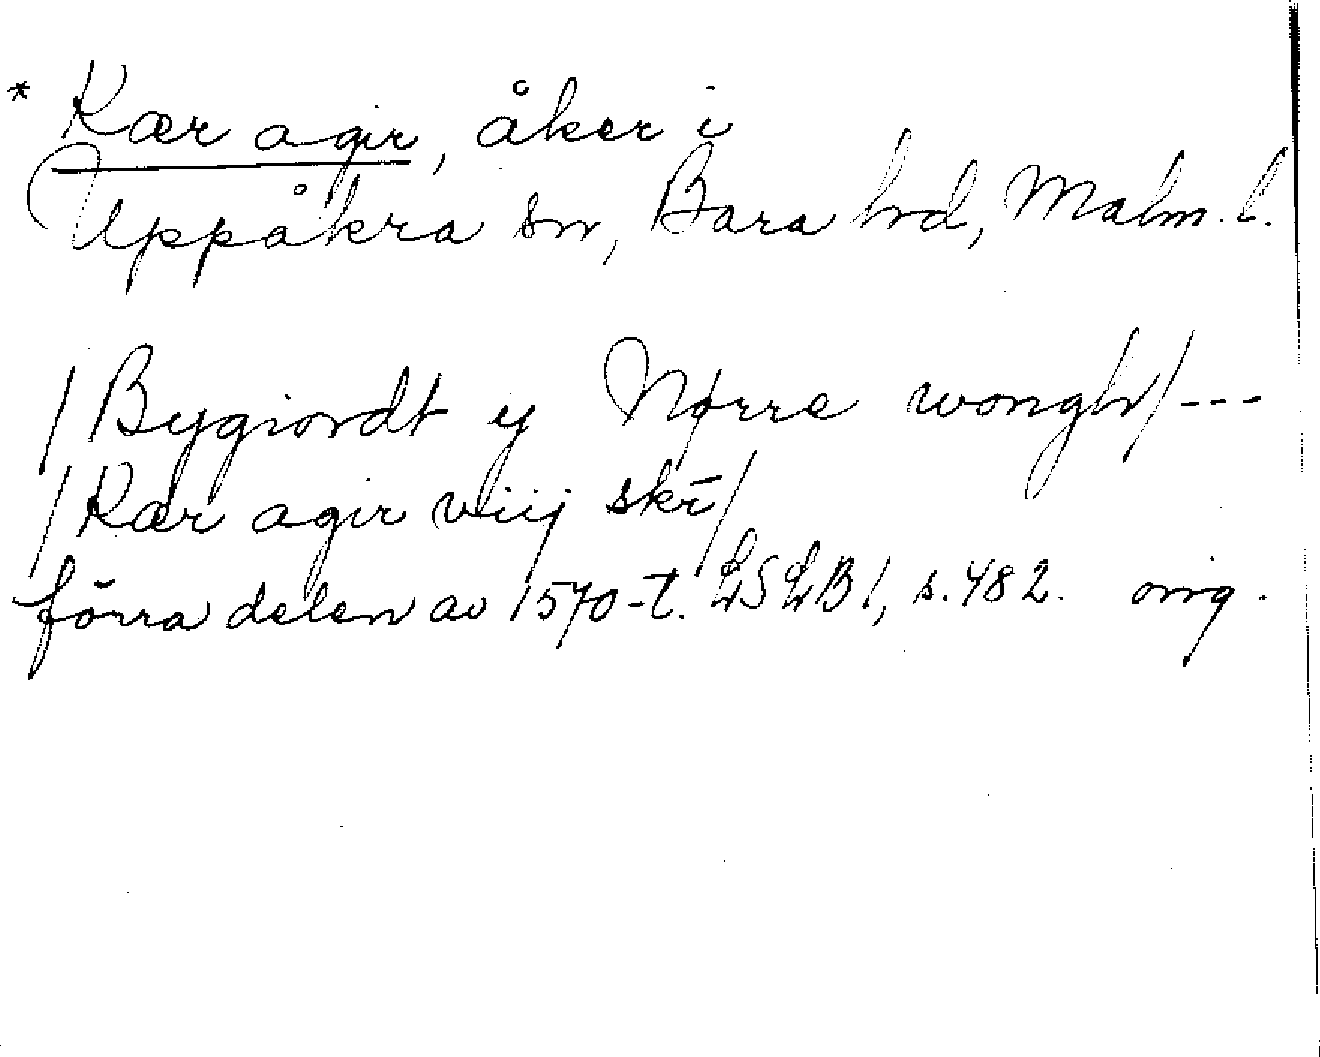 * Kær agir, åker i
Uppåkra sn, Bara hrd, Malm. l.
/Bygiordt y Nørre wongh/ ---
/Kær agir viij skr̄/
förra delen av 1570-t. LSLB 1, s. 482. orig.